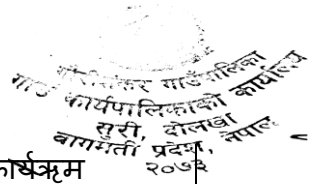 गौरीशंकर गाउँपालिका
गाउँ कार्यपालिकाको कार्यालय
सुरी, दोलखा
बागमती प्रदेश, नेपाल
२०७३
कार्यक्रम